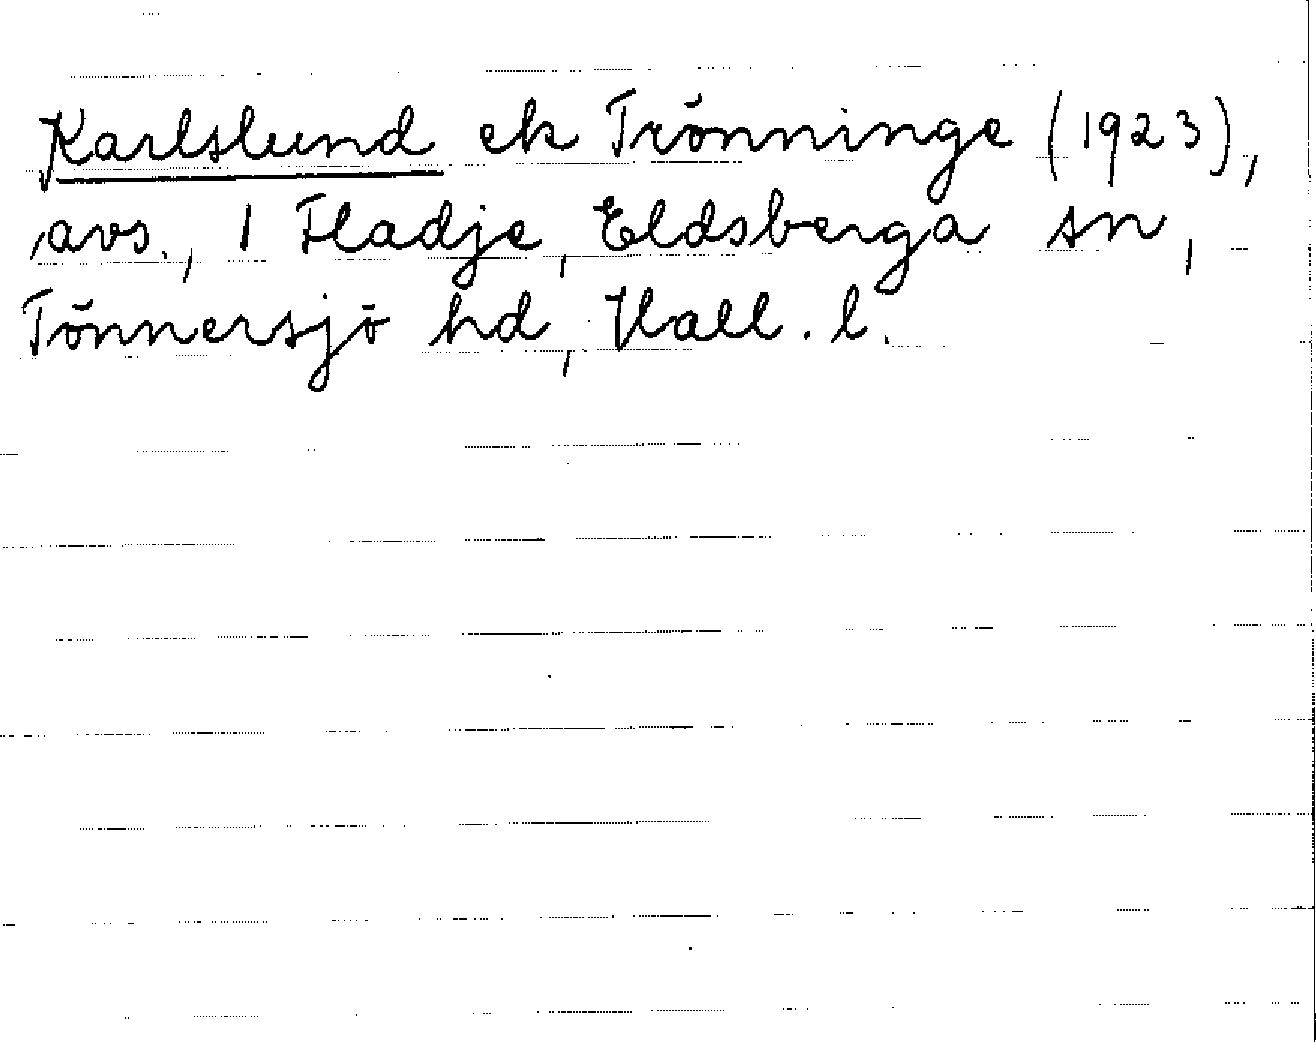 Karlslund ek Trönninge (1923),
avs., 1 Fladje, Eldsberga sn,
Tönnersjö hd, Hall. l.